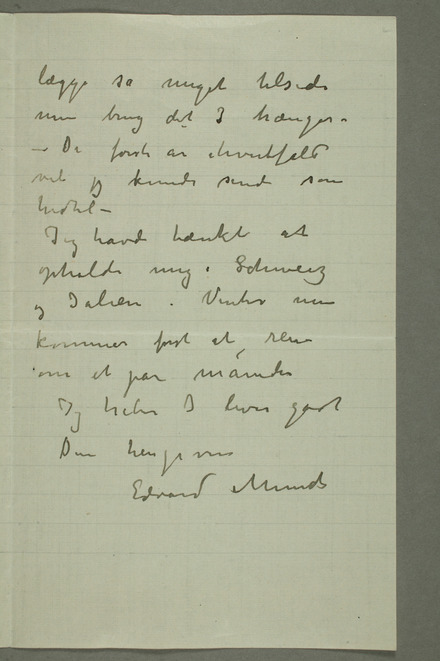 lægge så meget tilside
men brug det I trænger –
– De første år ihvertfald
vil jeg kunde sende som
hidtil –
Jeg havde tænkt at
opholde mig i Schweiz
og Italien. Vinter men
kommer først at reise
om et par måneder
Jeg håber I lever godt
Din hengivne
Edvard Munch